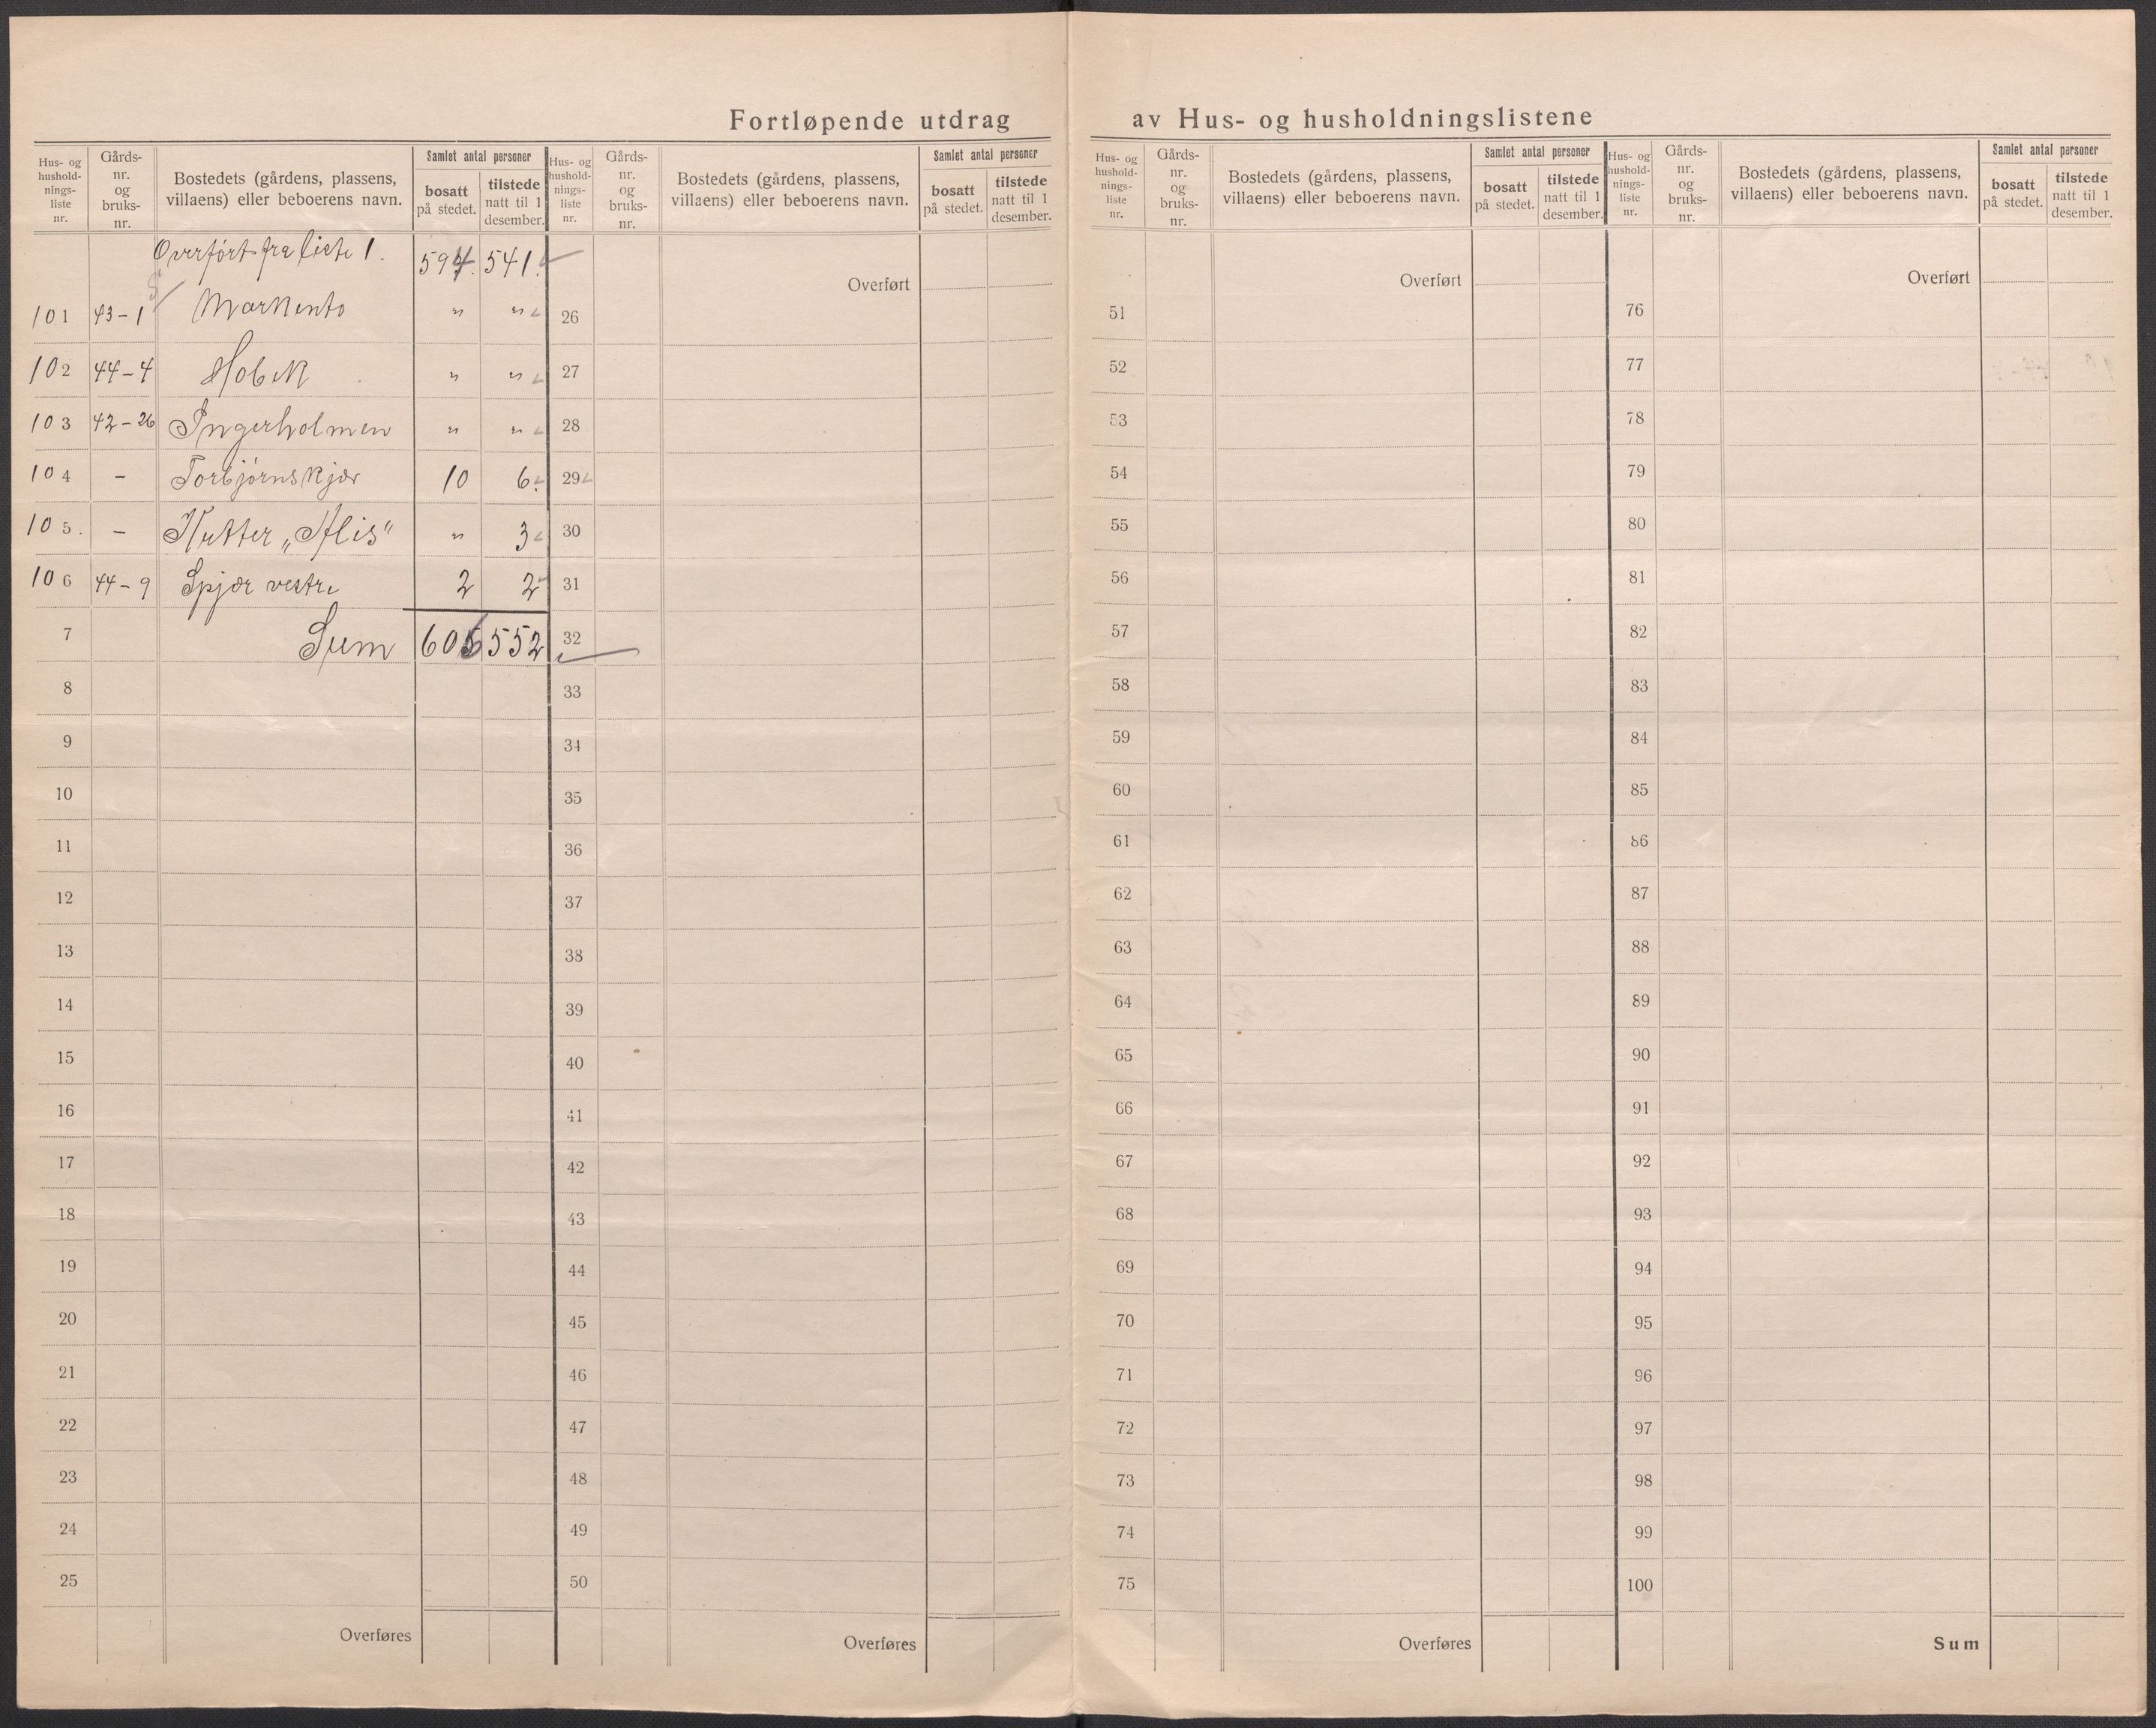 Fortløpende utdrag av Hus- og husholdningslistene
Hus- og husholdnings-liste nr. | Gårds-nr. og bruks-nr. | Bostedets (gårdens, plassens, villaens) eller beboerens navn. | Samlet antal personer | bosatt på stedet. | tilstede natt til 1 desember.
Overført fra liste 1. 594. 541.
101 43-1 Markento " "
102 44-4 Hobek " "
103 42-26 Ingerholmen " "
104 - Torbjørnskjær 10 6
105. - Kutter „Alis" " 3
106 44-9 Spjær vestre 2 2
7 Sum 606 552
8
9
10
11
12
13
14
15
16
17
18
19
20
21
22
23
24
25
Overføres
Hus- og husholdnings-liste nr. | Gårds-nr. og bruks-nr. | Bostedets (gårdens, plassens, villaens) eller beboerens navn. | Samlet antal personer | bosatt på stedet. | tilstede natt til 1 desember.
Overført
26
27
28
29
30
31
32
33
34
35
36
37
38
39
40
41
42
43
44
45
46
47
48
49
50
Overføres
Hus- og husholdnings-liste nr. | Gårds-nr. og bruks-nr. | Bostedets (gårdens, plassens, villaens) eller beboerens navn. | Samlet antal personer | bosatt på stedet. | tilstede natt til 1 desember.
Overført
51
52
53
54
55
56
57
58
59
60
61
62
63
64
65
66
67
68
69
70
71
72
73
74
75
Overføres
Hus- og husholdnings-liste nr. | Gårds-nr. og bruks-nr. | Bostedets (gårdens, plassens, villaens) eller beboerens navn. | Samlet antal personer | bosatt på stedet. | tilstede natt til 1 desember.
Overført
76
77
78
79
80
81
82
83
84
85
86
87
88
89
90
91
92
93
94
95
96
97
98
99
100
Sum